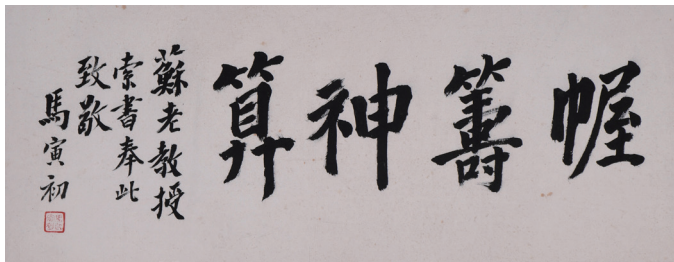 幄籌神算
蘇老教授
索書奉此
致敬
馬寅初